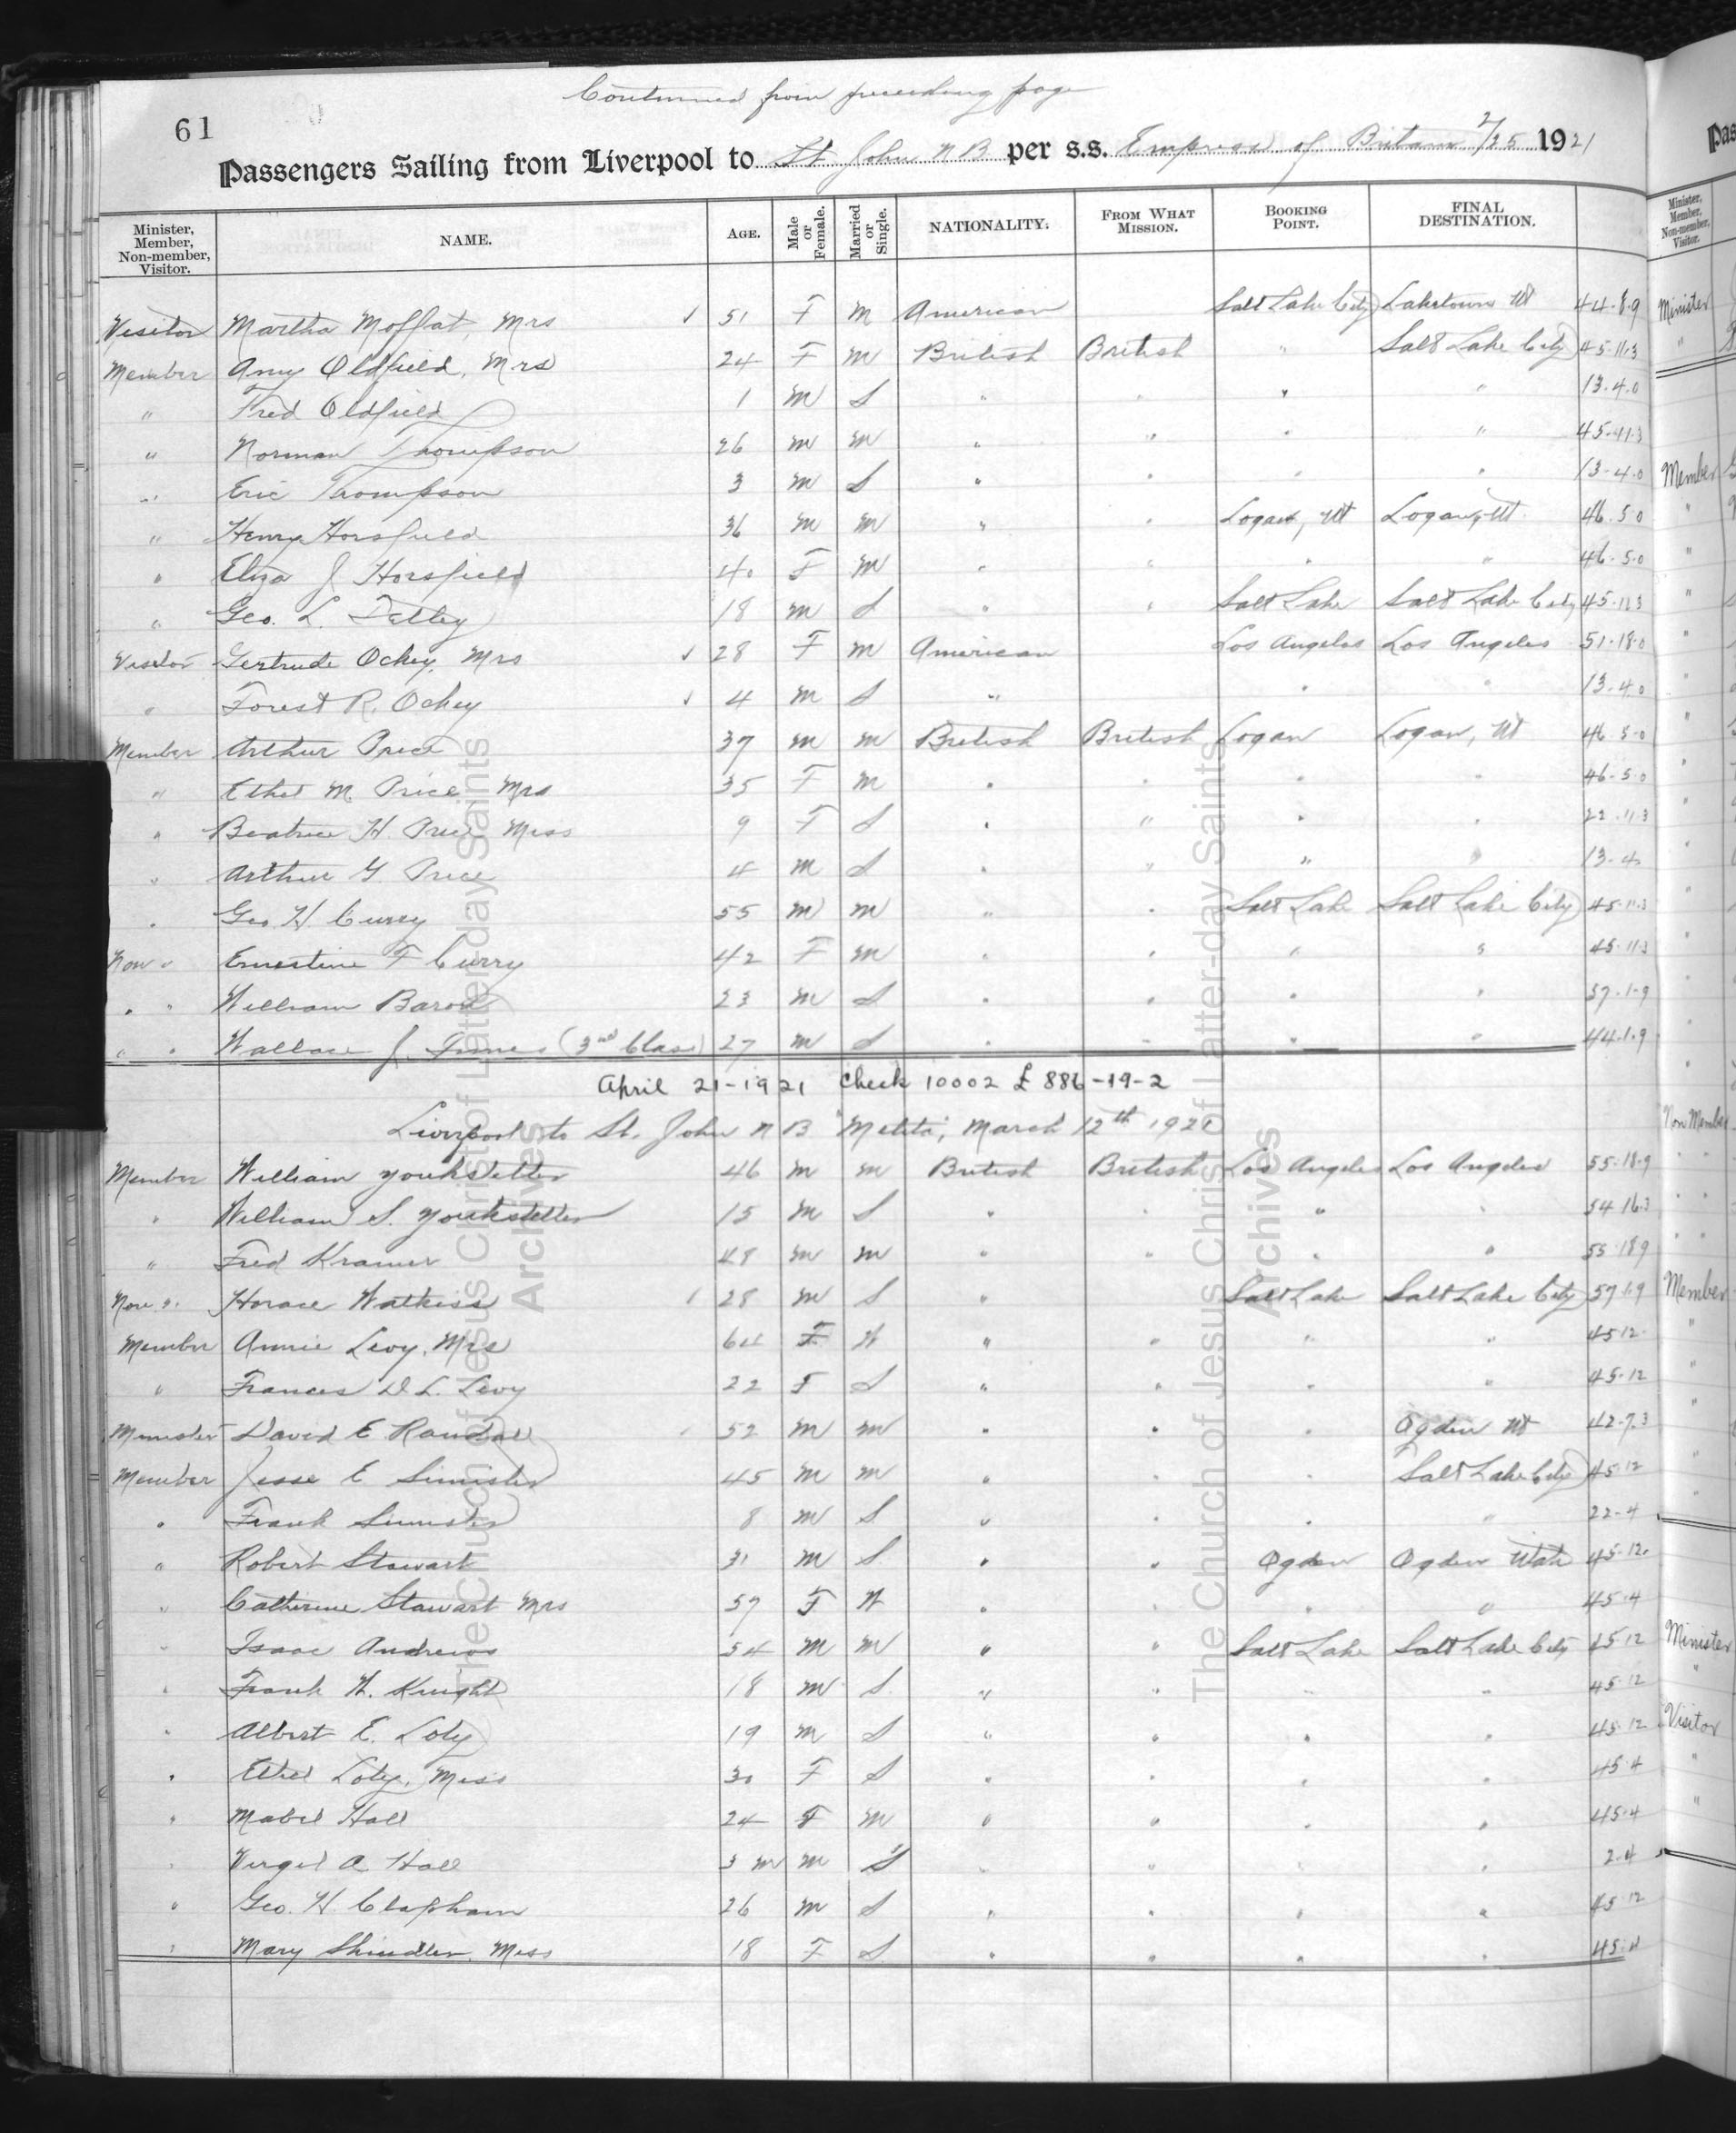 Continued from preceeding page
61
Passengers Sailing from Liverpool to St John N B per s.s. Empress of Britain 2/25 1921
Minister, Member, Non-member, Visitor. NAME. AGE. Male or Female. Married or Single. NATIONALITY. FROM WHAT MISSION. BOOKING POINT. FINAL DESTINATION.
Visitor Martha Moffat, Mrs ✓ 51 F M American Salt Lake City Laketown Ut 44-8-9
Member Amy Oldfield, Mrs 24 F M British British " Salt Lake City 45-11-3
" Fred Oldfield 1 M S " " " " 13-4-0
" Norman Thompson 26 M M " " " " 45-11-3
" Eric Thompson 3 M S " " " " 13-4-0
" Henry Horsfield 36 M M " " Logan, Ut Logan, Ut 46-5-0
" Eliza J Horsfield 40 F M " " " " 46-5-0
" Geo. L. Tetley 18 M S " " Salt Lake Salt Lake City 45-11-3
Visitor Gertrude Ockey, Mrs ✓ 28 F M American Los Angeles Los Angeles 51-18-0
" Forest R. Ockey ✓ 4 M S " " " 13-4-0
Member Arthur Price 37 M M British British Logan Logan, Ut 46-5-0
" Ethel M. Price, Mrs 35 F M " " " " 46-5-0
" Beatrice H. Price Miss 9 F S " " " " 22-11-3
" Arthur G. Price 4 M S " " " " 13-4
" Geo. H. Curry 55 M M " " Salt Lake Salt Lake City 45-11-3
Non " Ernestine F Curry 42 F M " " " " 45-11-3
" " William Baron 23 M S " " " " 37-1-9
" " Wallace J. (3rd Class) 27 M S " " " " 44-1-9
April 21-1921 Check 10002 £ 886-19-2
Liverpool to St. John N B "Metita", March 12th 1921
Member William Youkstetter 46 M M British British Los Angeles Los Angeles 55-18-9
" William S. Youkstetter 15 M S " " " " 54-16-3
" Fred Kramer 48 M M " " " " 55-18-9
Non " Horace Watkiss 28 M S " Salt Lake Salt Lake City 57-1-9
Member Annie Levy, Mrs 64 F W " " " " 45-12
" Frances D. L. Levy 22 F S " " " " 45-12
Minister David E Randall 52 M M " " " Ogden Ut 42-7-3
Member Jesse E Simister 45 M M " " " Salt Lake City 45-12
" Frank Simister 8 M S " " " " 22-4
" Robert Stewart 31 M S " " Ogden Ogden Utah 45-12
" Catherine Stewart Mrs 57 F W " " " " 45-4
" Isaac Andrews 54 M M " " Salt Lake Salt Lake City 45-12
" Frank W. Knight 18 M S " " " " 45-12
" Albert E. Loty 19 M S " " " " 45-12
" Ethel Loty, Miss 30 F S " " " " 45-4
" Mabel Hall 24 F M " " " " 45-4
" Virgel A Hall 3 M M S " " " " 2-4
" Geo. H. Clapham 26 M S " " " " 45-12
" Mary Shindler, Miss 18 F S " " " " 45-4
The Church of Jesus Christ of Latter-day Saints
Archives
The Church of Jesus Christ of Latter-day Saints
Archives
Pas
Minister, Member, Non-member, Visitor.
Minister
Member
Non Member
Member
Minister
Visitor